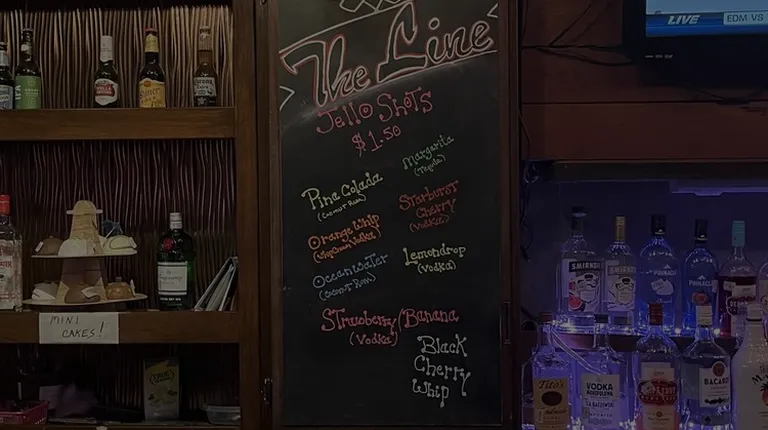 The Line
Jello Shots
$1.50
Margarita
(Tequila)
Pina Colada
(Coconut Rum)
Starburst
Cherry
(Vodka)
Orange Whip
Oceanwater
(Coconut Rum)
Lemondrop
(Vodka)
Strawberry/Banana
(Vodka)
Black
Cherry
Whip
MINI
CAKES!
LIVE
EDM VS
SMIRNOFF
PINNACLE
PINNACLE
Tito's
VODKA
BACARDI